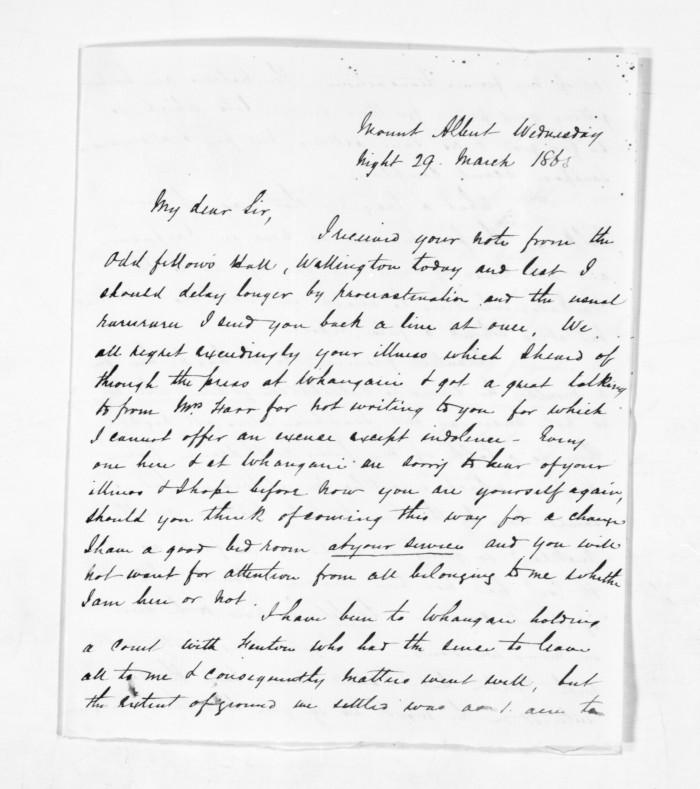 Mount Albert Wednesday
Night 29. March 186
My dear Sir,
I received your note from the
Odd fellows Hall, Wellington today and lest I
should delay longer by procrastination and the usual
raruraru I send you back a line at once. We
all regret exceedingly your illness which I heard of
through the press at Whangarei & got a great talking
to from Mrs Farr for not writing to you for which
I cannot offer an excuse except indolence - Every
one here & at Whangarei are sorry to hear of your
illness & I hope before now you are yourself again,
should you think of coming this way for a change
I have a good bed room at your service and you will
not want for attention from all belonging to me whether
I am here or not.
I have been to Whangarei holding
a court with Fenton who had the sense to leave
all to me & consequently matters went well, but
the extent of ground we settled was as 1. acre to